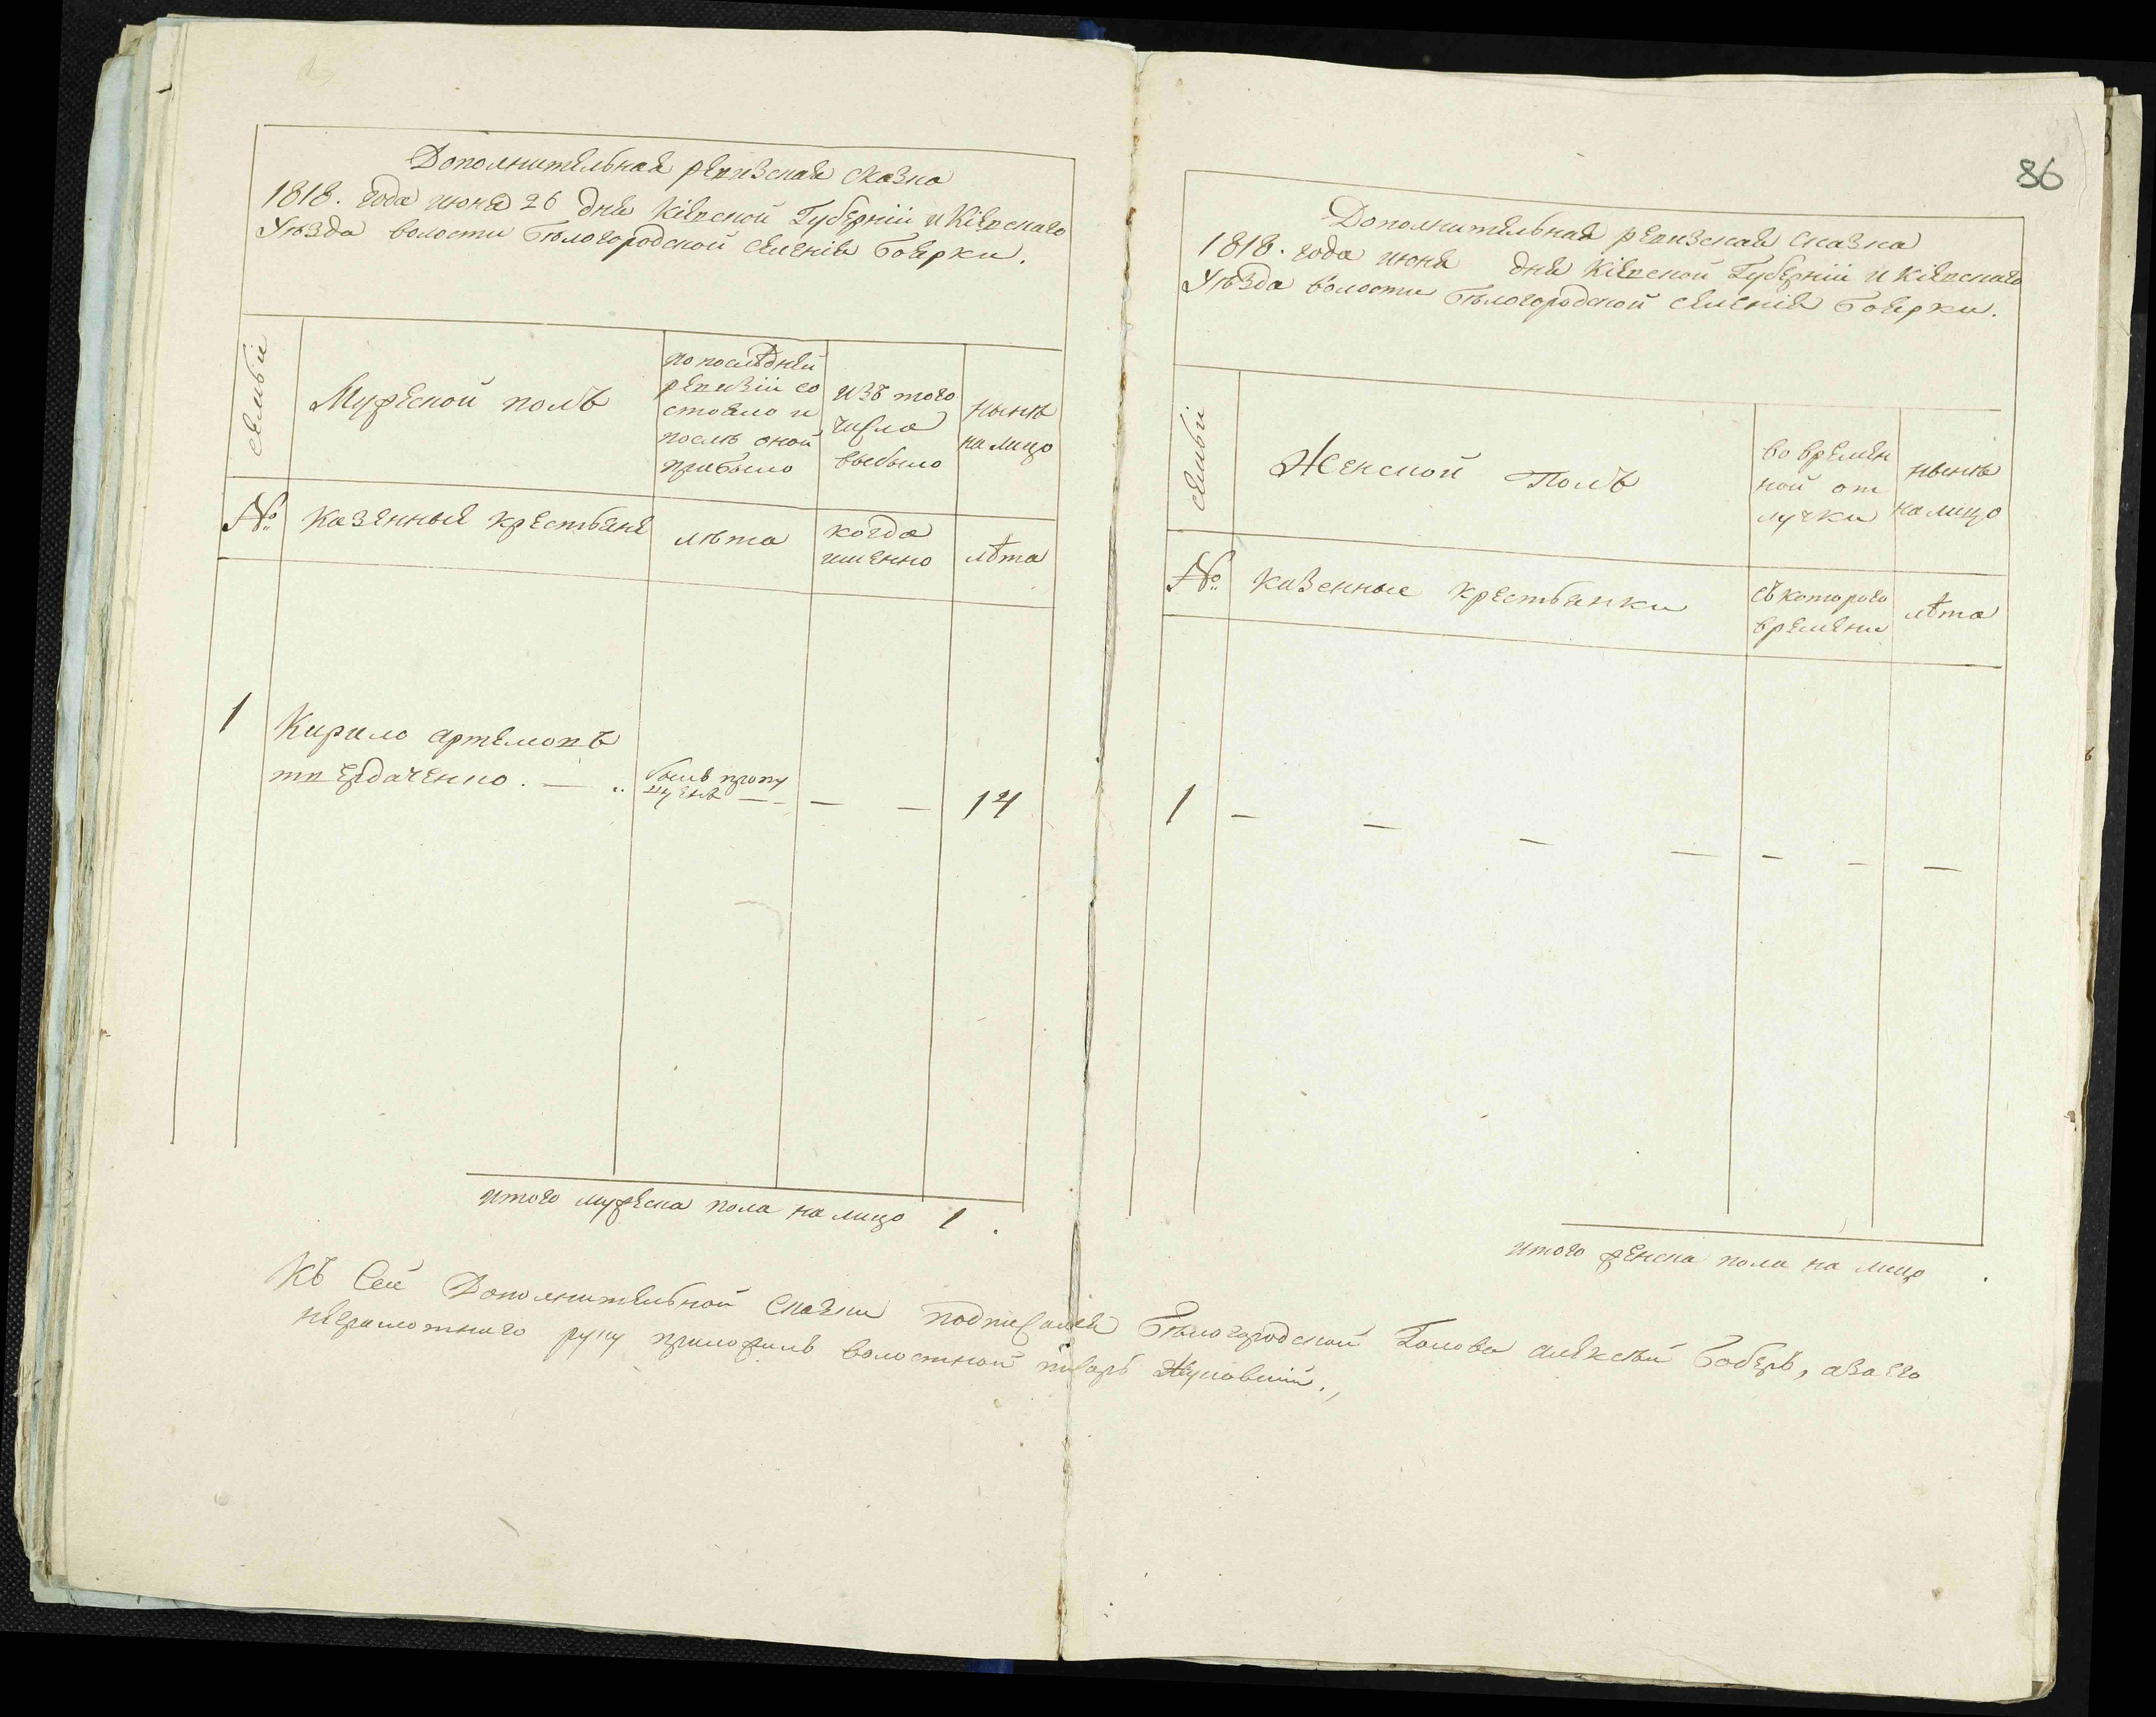 Дополнительная ревизская сказка
1818. года июня 26 дня Кіевской Губерніи и Кіевскаго
Уѣзда волости Бѣлогородской селенія Боярки.
семьи
Мужеской полъ
по послѣдней
ревизіи со
стояло и
послѣ оной
прибыло
изъ того
числа
выбыло
нынѣ
на лицо
№
казенныя крестьяня
лѣта
когда
имянно
лѣта
1
Кирило Артемовъ
Твердаченко. — ..
былъ пропу
щенъ — —
— —
14
итого мужеска пола на лицо 1.
86
Дополнительная ревизская сказка
1818. года июня дня Кіевской Губерніи и Кіевскаго
Уѣзда волости Бѣлогородской селенія Боярки.
семьи
Женской Полъ
во времян
ной от
лучки
нынѣ
на лицо
№
казенные крестьянки
съ котораго
времяни
лѣта
1 — — — — — — —
итого женска пола на лицо .
Къ Сей Дополнительной сказки подписался Бѣлогородской Голова Алексѣй Боберъ, а за его
неграмотнаго руку приложилъ волостной писарь Жуковскій.,